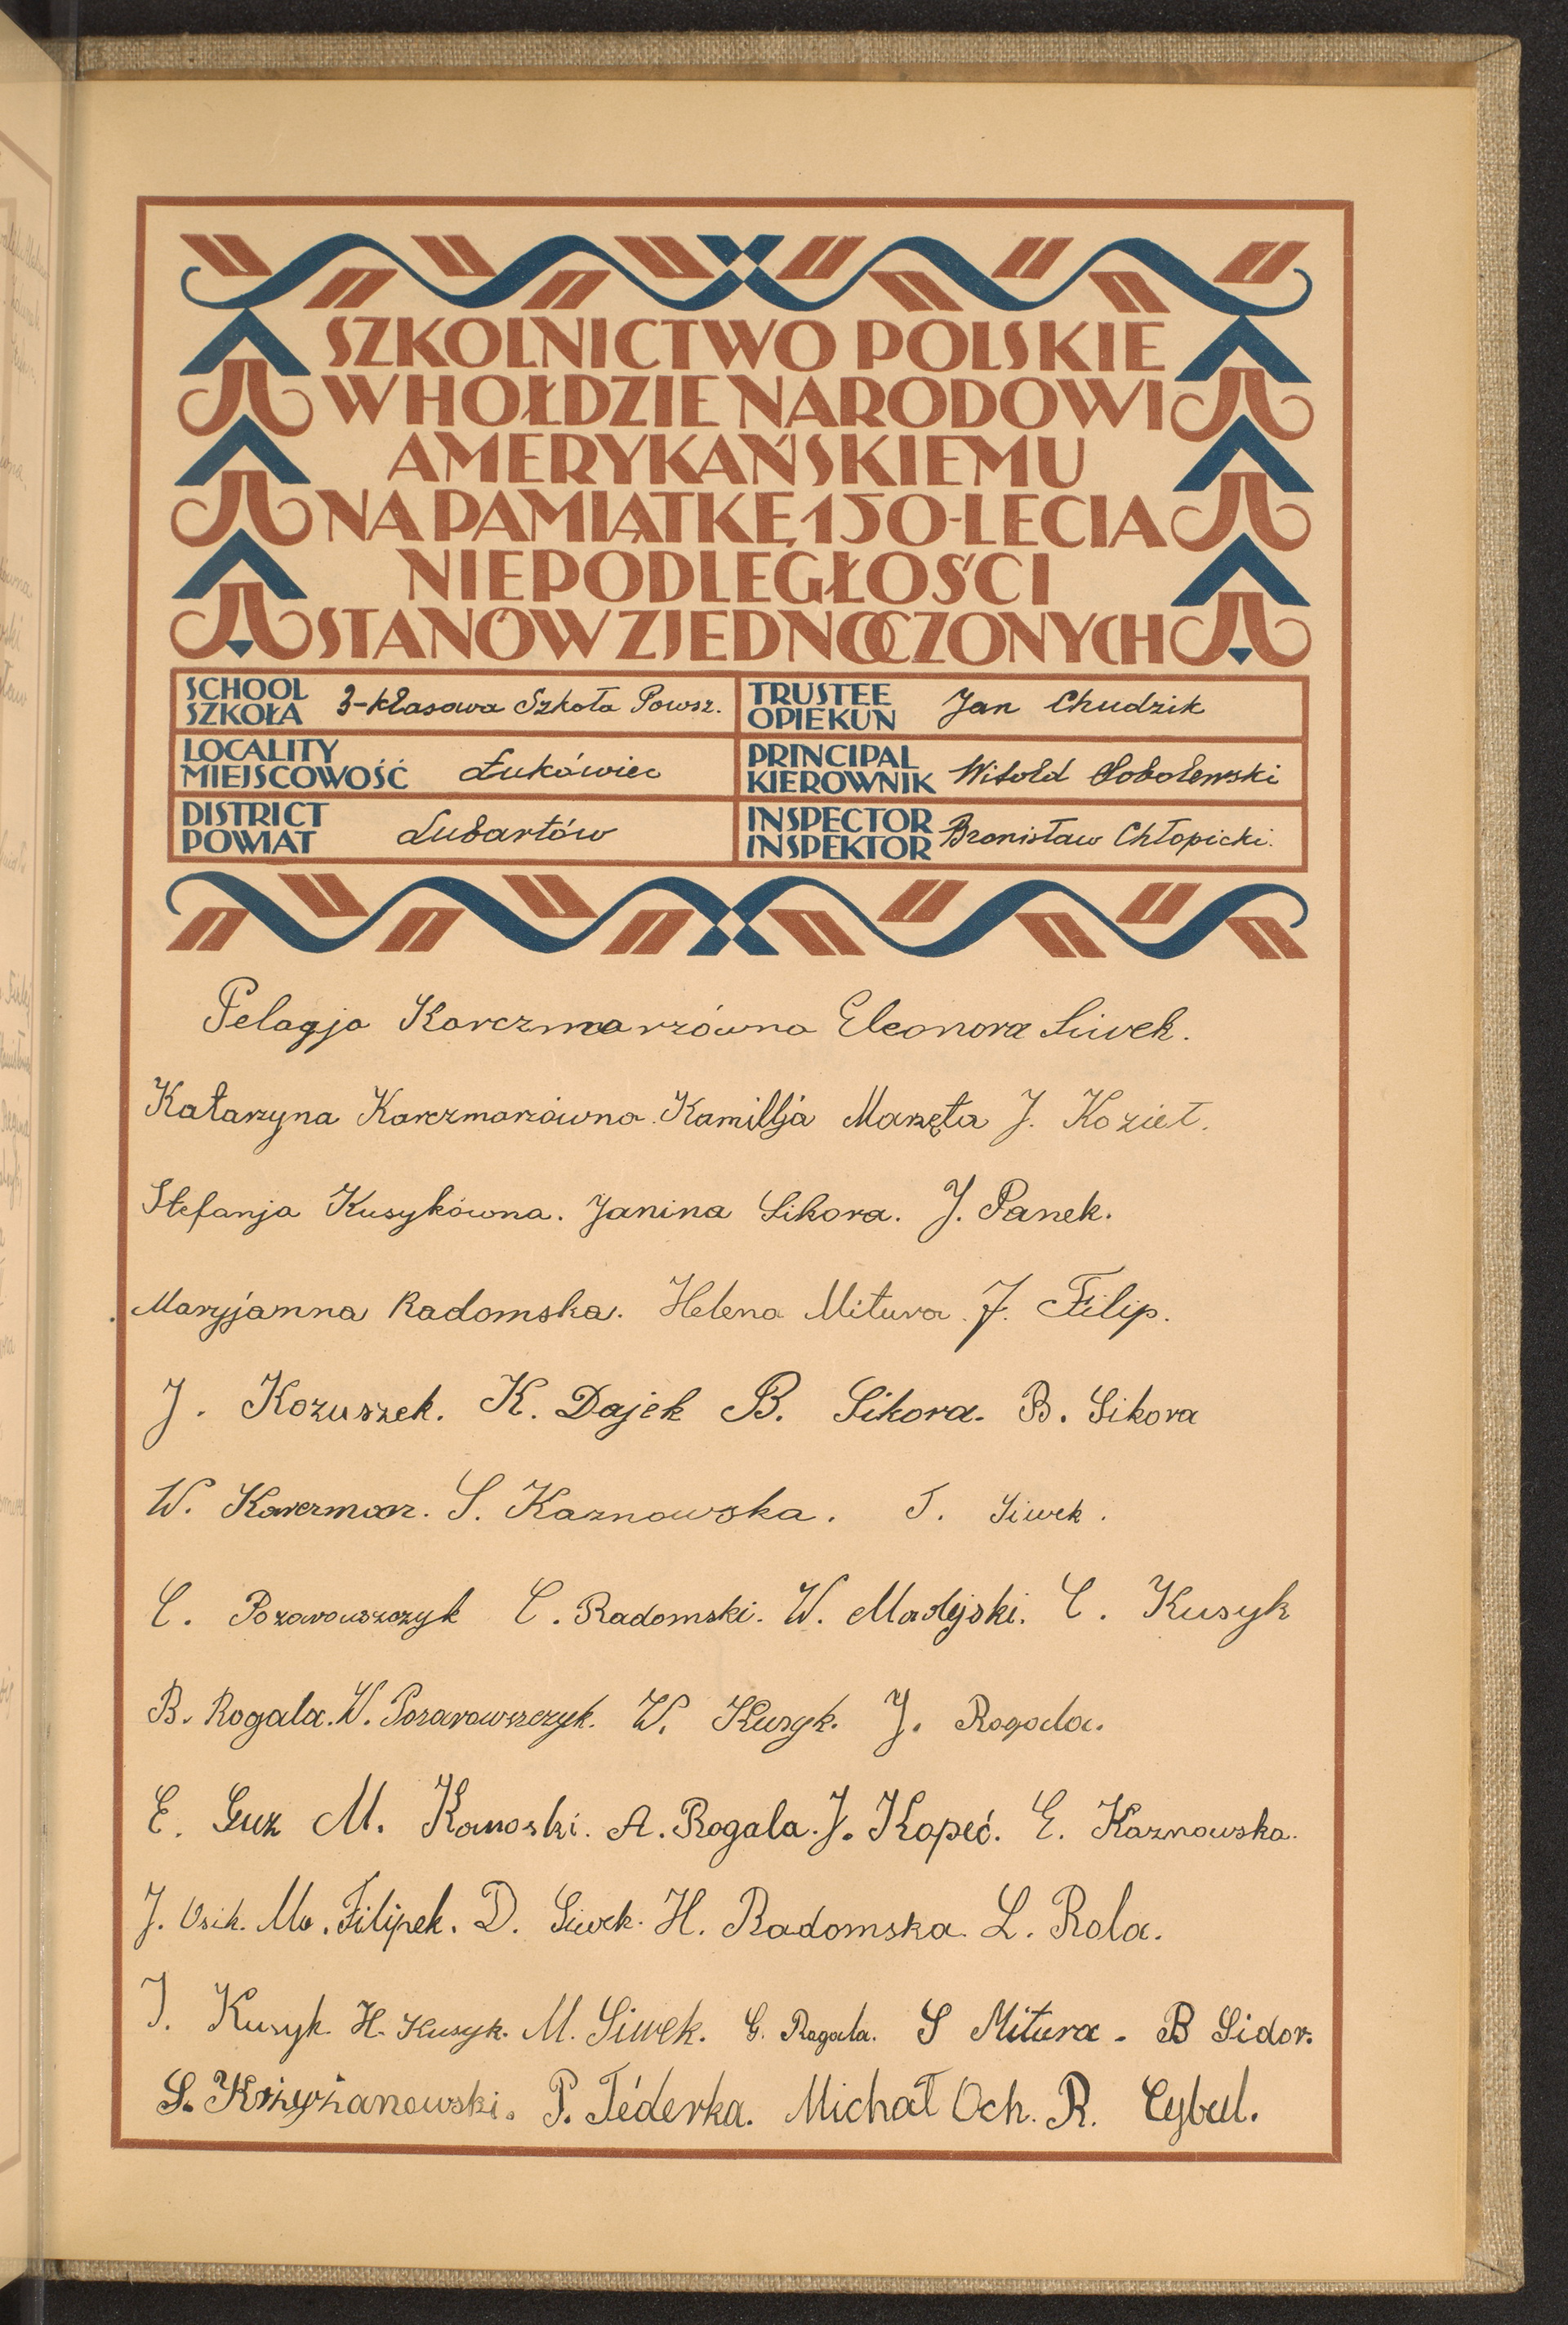 SZKOLNICTWO POLSKIE
W HOŁDZIE NARODOWI
AMERYKAŃSKIEMU
NA PAMIĄTKĘ 150-LECIA
NIEPODLEGŁOŚCI
STANÓW ZJEDNOCZONYCH
SCHOOL
SZKOŁA 3-klasowa Szkoła Powsz.
TRUSTEE
OPIEKUN Jan Chudzik
LOCALITY
MIEJSCOWOŚĆ Łukówiec
PRINCIPAL
KIEROWNIK Witold Sobolewski
DISTRICT
POWIAT Lubartów
INSPECTOR
INSPEKTOR Bronisław Chłopicki.
Pelagja Karczmarzówna Eleonora Siwek.
Katarzyna Karczmarzówna. Kamillja Marzęta J. Kozieł.
Stefanja Kusykówna. Janina Sikora. J. Panek.
Maryjanna Radomska. Helena Mitura. J. Filip.
J. Kozuszek. K. Dajek B. Sikora. B. Sikora
W. Karczmarz. S. Kaznowska. J. Siwek.
C. Pozarowszczyk C. Radomski. W. Madyjski. C. Kusyk
B. Rogala. W. Pozarowszczyk. W. Kusyk. J. Rogala.
E. Guz M. Kanoski. A. Rogala. J. Kopeć. E. Kaznowska.
J. Osik. M. Filipek. D. Siwek. H. Radomska. L. Rola.
J. Kusyk. H. Kusyk. M. Siwek. G. Rogala. S Mitura. B Sidor.
S. Krzyżanowski. P. Féderka. Michał Och. R. Cybul.